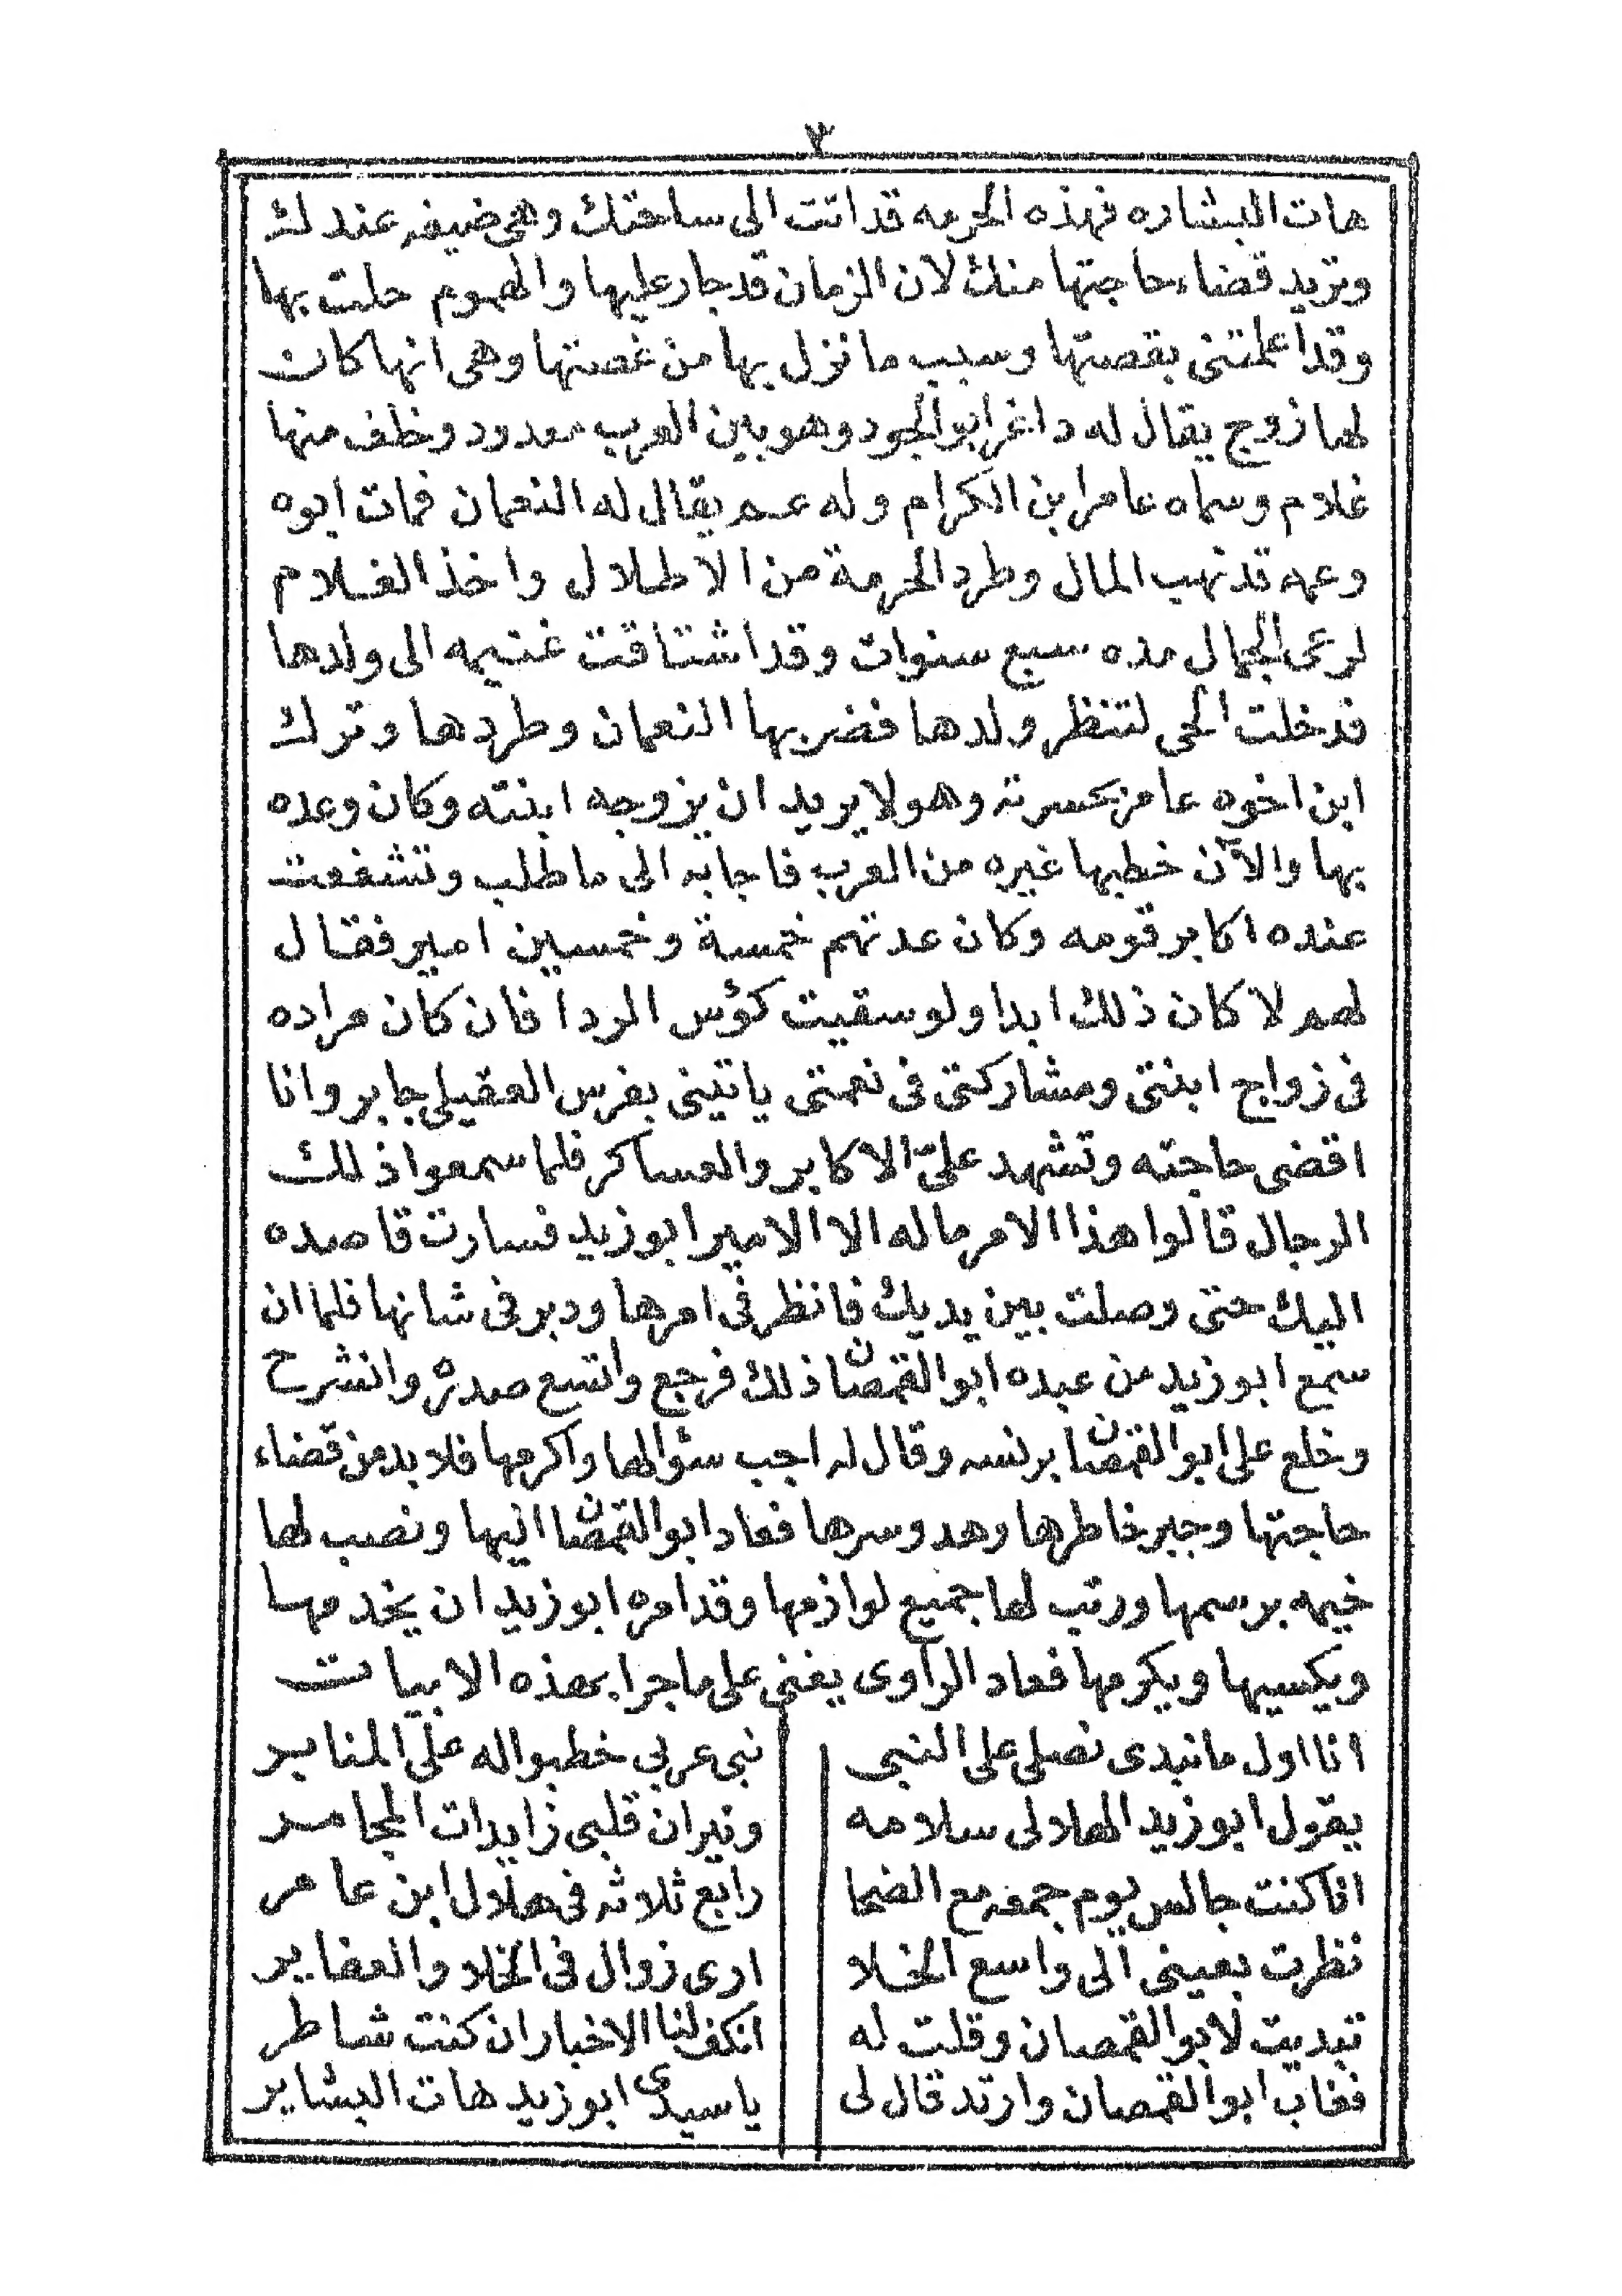 ٣
هات البشاره فهذه الحرمه قد اتت الى ساحتك وهى ضيفه عندك
وتريد قضاء حاجتها منك لان الزمان قد جار عليها والهموم حلت بها
وقد اعلمتنى بقصتها وسبب ما نزل بها من غصتها وهى انها كان
لها زوج يقال له داغر ابو الجود وهو بين العرب معدود وخلف منها
غلام وسماه عامر ابن الكرام وله عم يقال له النعمان فمات ابوه
وعمه قد نهب المال وطرد الحرمة من الاطلال واخذ الغلام
لرعى الجمال مده سبع سنوات وقد اشتاقت غنيمه الى ولدها
فدخلت الحى لتنظر ولدها فضربها النعمان وطردها وترك
ابن اخوه عامر بحسرته وهو لا يريد ان يزوجه ابنته وكان وعده
بها والآن خطبها غيره من العرب فاجابه الى ما طلب وتشفعت
عنده اكابر قومه وكان عدتهم خمسة وخمسين امير فقال
لهم لا كان ذلك ابدا ولو سقيت كؤس الردا فان كان مراده
فى زواج ابنتى ومشاركتى فى نعمتى ياتينى بفرس العقيلى جابر وانا
اقضى حاجته وتشهد علىّ الاكابر والعساكر فلما سمعوا ذلك
الرجال قالوا هذا الامر ماله الا الامير ابو زيد فسارت قاصده
اليك حتى وصلت بين يديك فانظر فى امرها ودبر فى شانها فلما ان
سمع ابو زيد من عبده ابو القمصان ذلك فرجع واتسع صدره وانشرح
وخلع على ابو القمصان برنسه وقال له اجب سؤالها واكرمها فلا بد من قضاء
حاجتها وجبر خاطرها وهدو سرها فعاد ابو القمصان اليها ونصب لها
خيمه برسمها ورتب لها جميع لوازمها وقد امره ابو زيد ان يخدمها
ويكسيها ويكرمها فعاد الراوى يغنى على ما جرا بهذه الابيات
انا اول ما نبدى نصلى على النبى نبى عربي خطبوا له على المنابر
يقول ابو زيد الهلالى سلامه ونيران قلبى زايدات المجامر
انا كنت جالس يوم جمعه مع الضحا رابع ثلاثه فى هلال ابن عامر
نظرت بعينى الى واسع الخلا ارى زوال فى الخلا والغضاير
تبديت لابو القمصان وقلت له انكف لنا الاخبار ان كنت شاطر
فغاب ابو القمصان وارتد قال لى يا سيدى ابو زيد هات البشاير